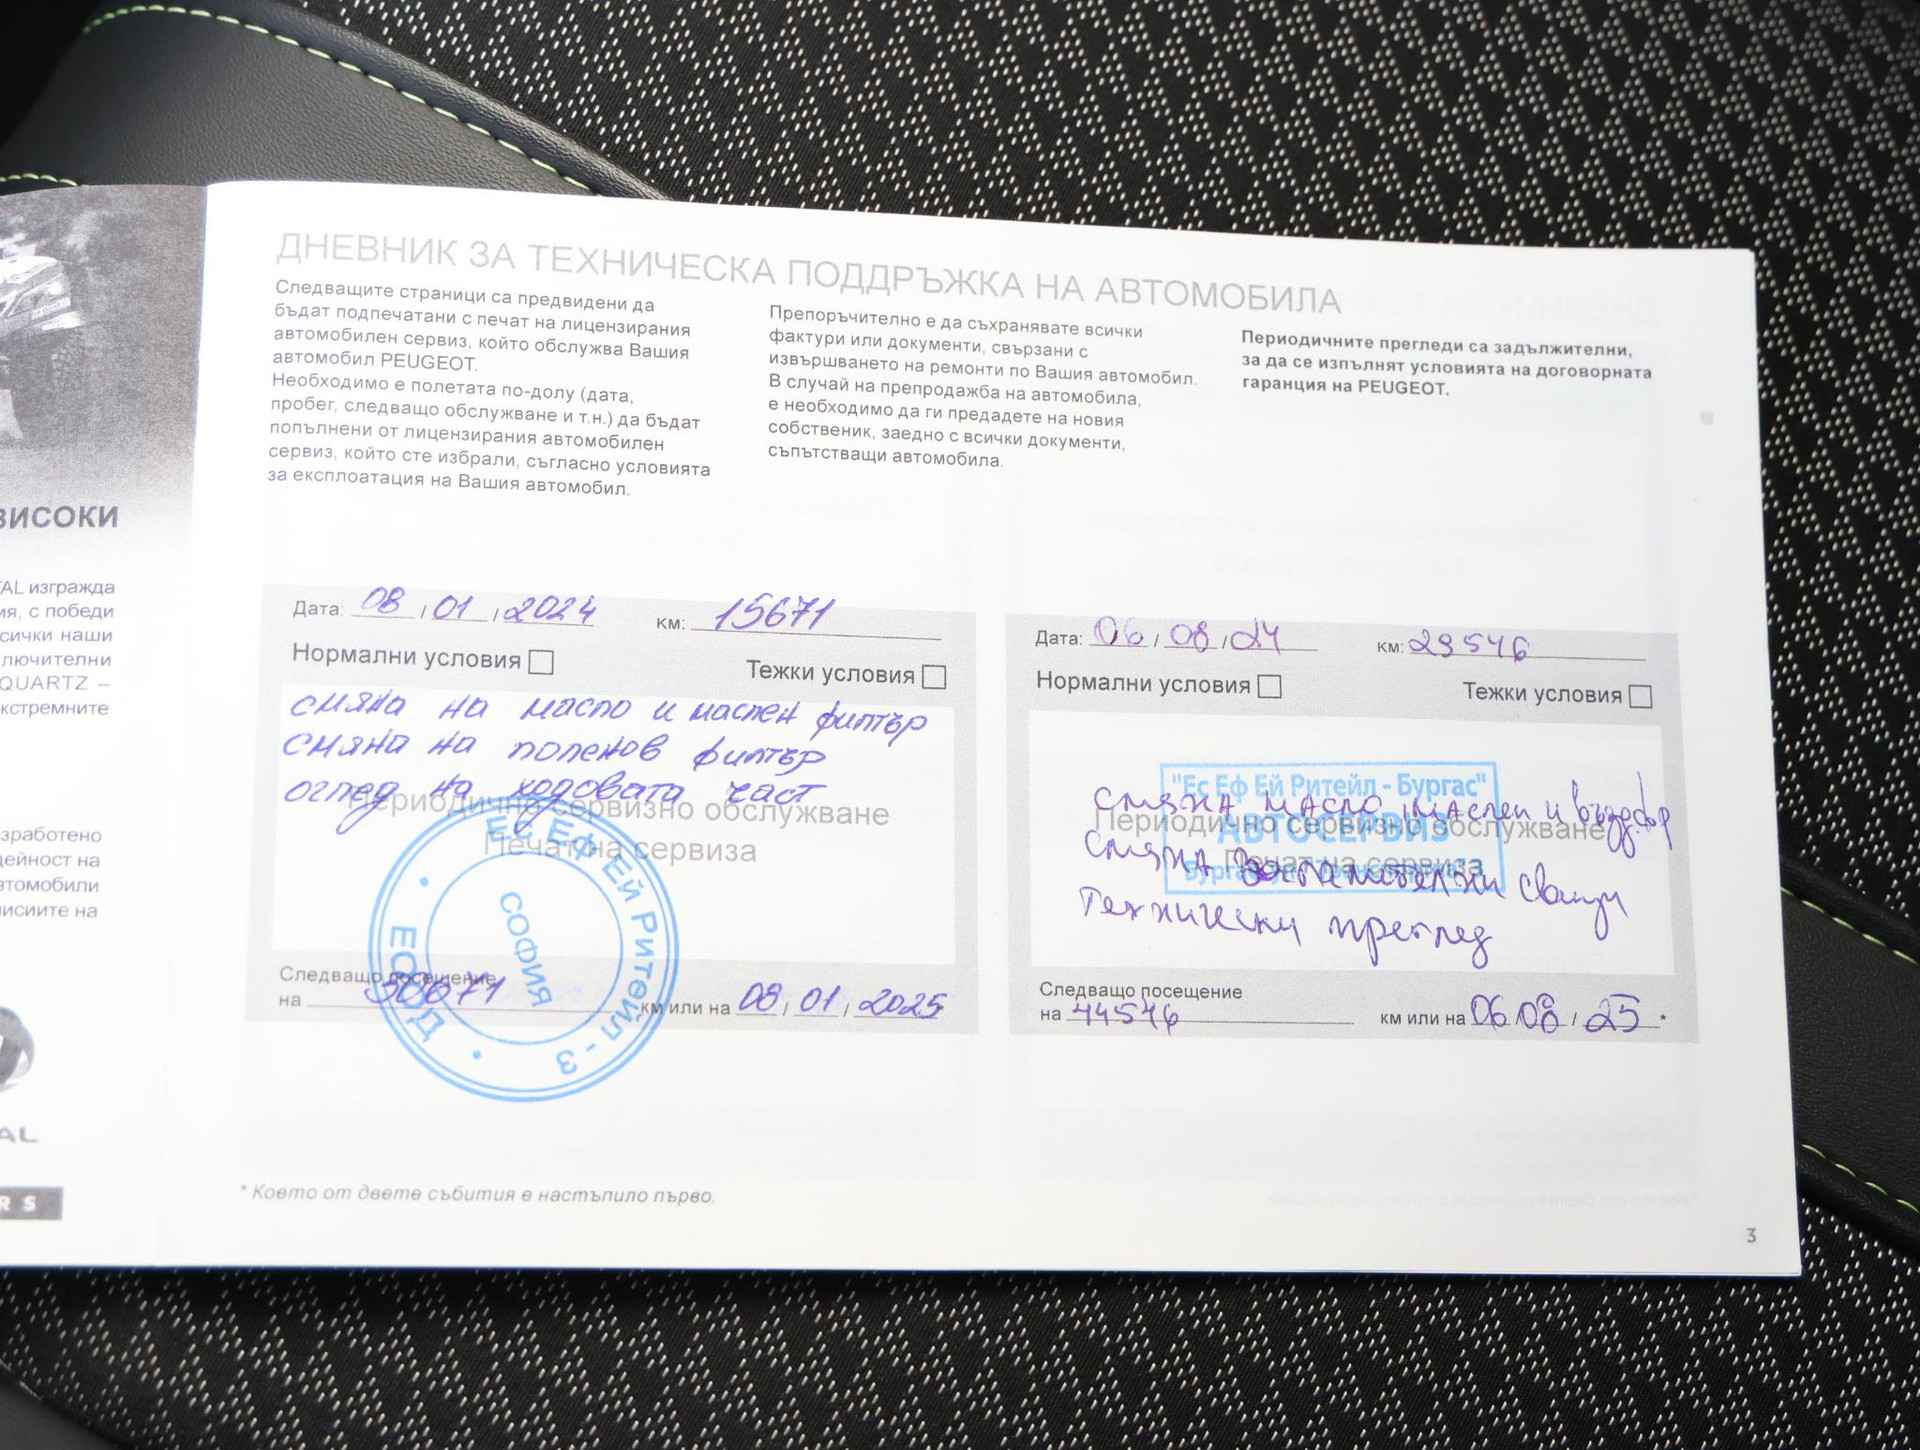 ВИСОКИ
TAL изгражда
ия, с победи
сички наши
лючителни
QUARTZ –
кстремните
зработено
дейност на
втомобили
писиите на
AL
R S
ДНЕВНИК ЗА ТЕХНИЧЕСКА ПОДДРЪЖКА НА АВТОМОБИЛА
Следващите страници са предвидени да
бъдат подпечатани с печат на лицензирания
автомобилен сервиз, който обслужва Вашия
автомобил PEUGEOT.
Необходимо е полетата по-долу (дата,
пробег, следващо обслужване и т.н.) да бъдат
попълнени от лицензирания автомобилен
сервиз, който сте избрали, съгласно условията
за експлоатация на Вашия автомобил.
Препоръчително е да съхранявате всички
фактури или документи, свързани с
извършването на ремонти по Вашия автомобил.
В случай на препродажба на автомобила,
е необходимо да ги предадете на новия
собственик, заедно с всички документи,
съпътстващи автомобила.
Периодичните прегледи са задължителни,
за да се изпълнят условията на договорната
гаранция на PEUGEOT.
Дата: 08 / 01 / 2024 км: 15671
Нормални условия Тежки условия
смяна на масло и маслен филтър
смяна на поленов филтър
оглед на ходовата част
Периодично сервизно обслужване
Печат на сервиза
ЕС ЕФ ЕЙ Ритейл - 3
ЕООД
СОФИЯ
Следващо посещение
на 30671 км или на 08 / 01 / 2025
Дата: 06 / 08 / 24 км: 29546
Нормални условия Тежки условия
"Ес Еф Ей Ритейл - Бургас"
смяна масло маслен и възд. ф-р
Периодично сервизно обслужване
АВТОСЕРВИЗ
смяна запалителни свещи
Печат на сервиза
Технически преглед
Следващо посещение
на 44546 км или на 06 / 08 / 25 *
* Което от двете събития е настъпило първо.
3